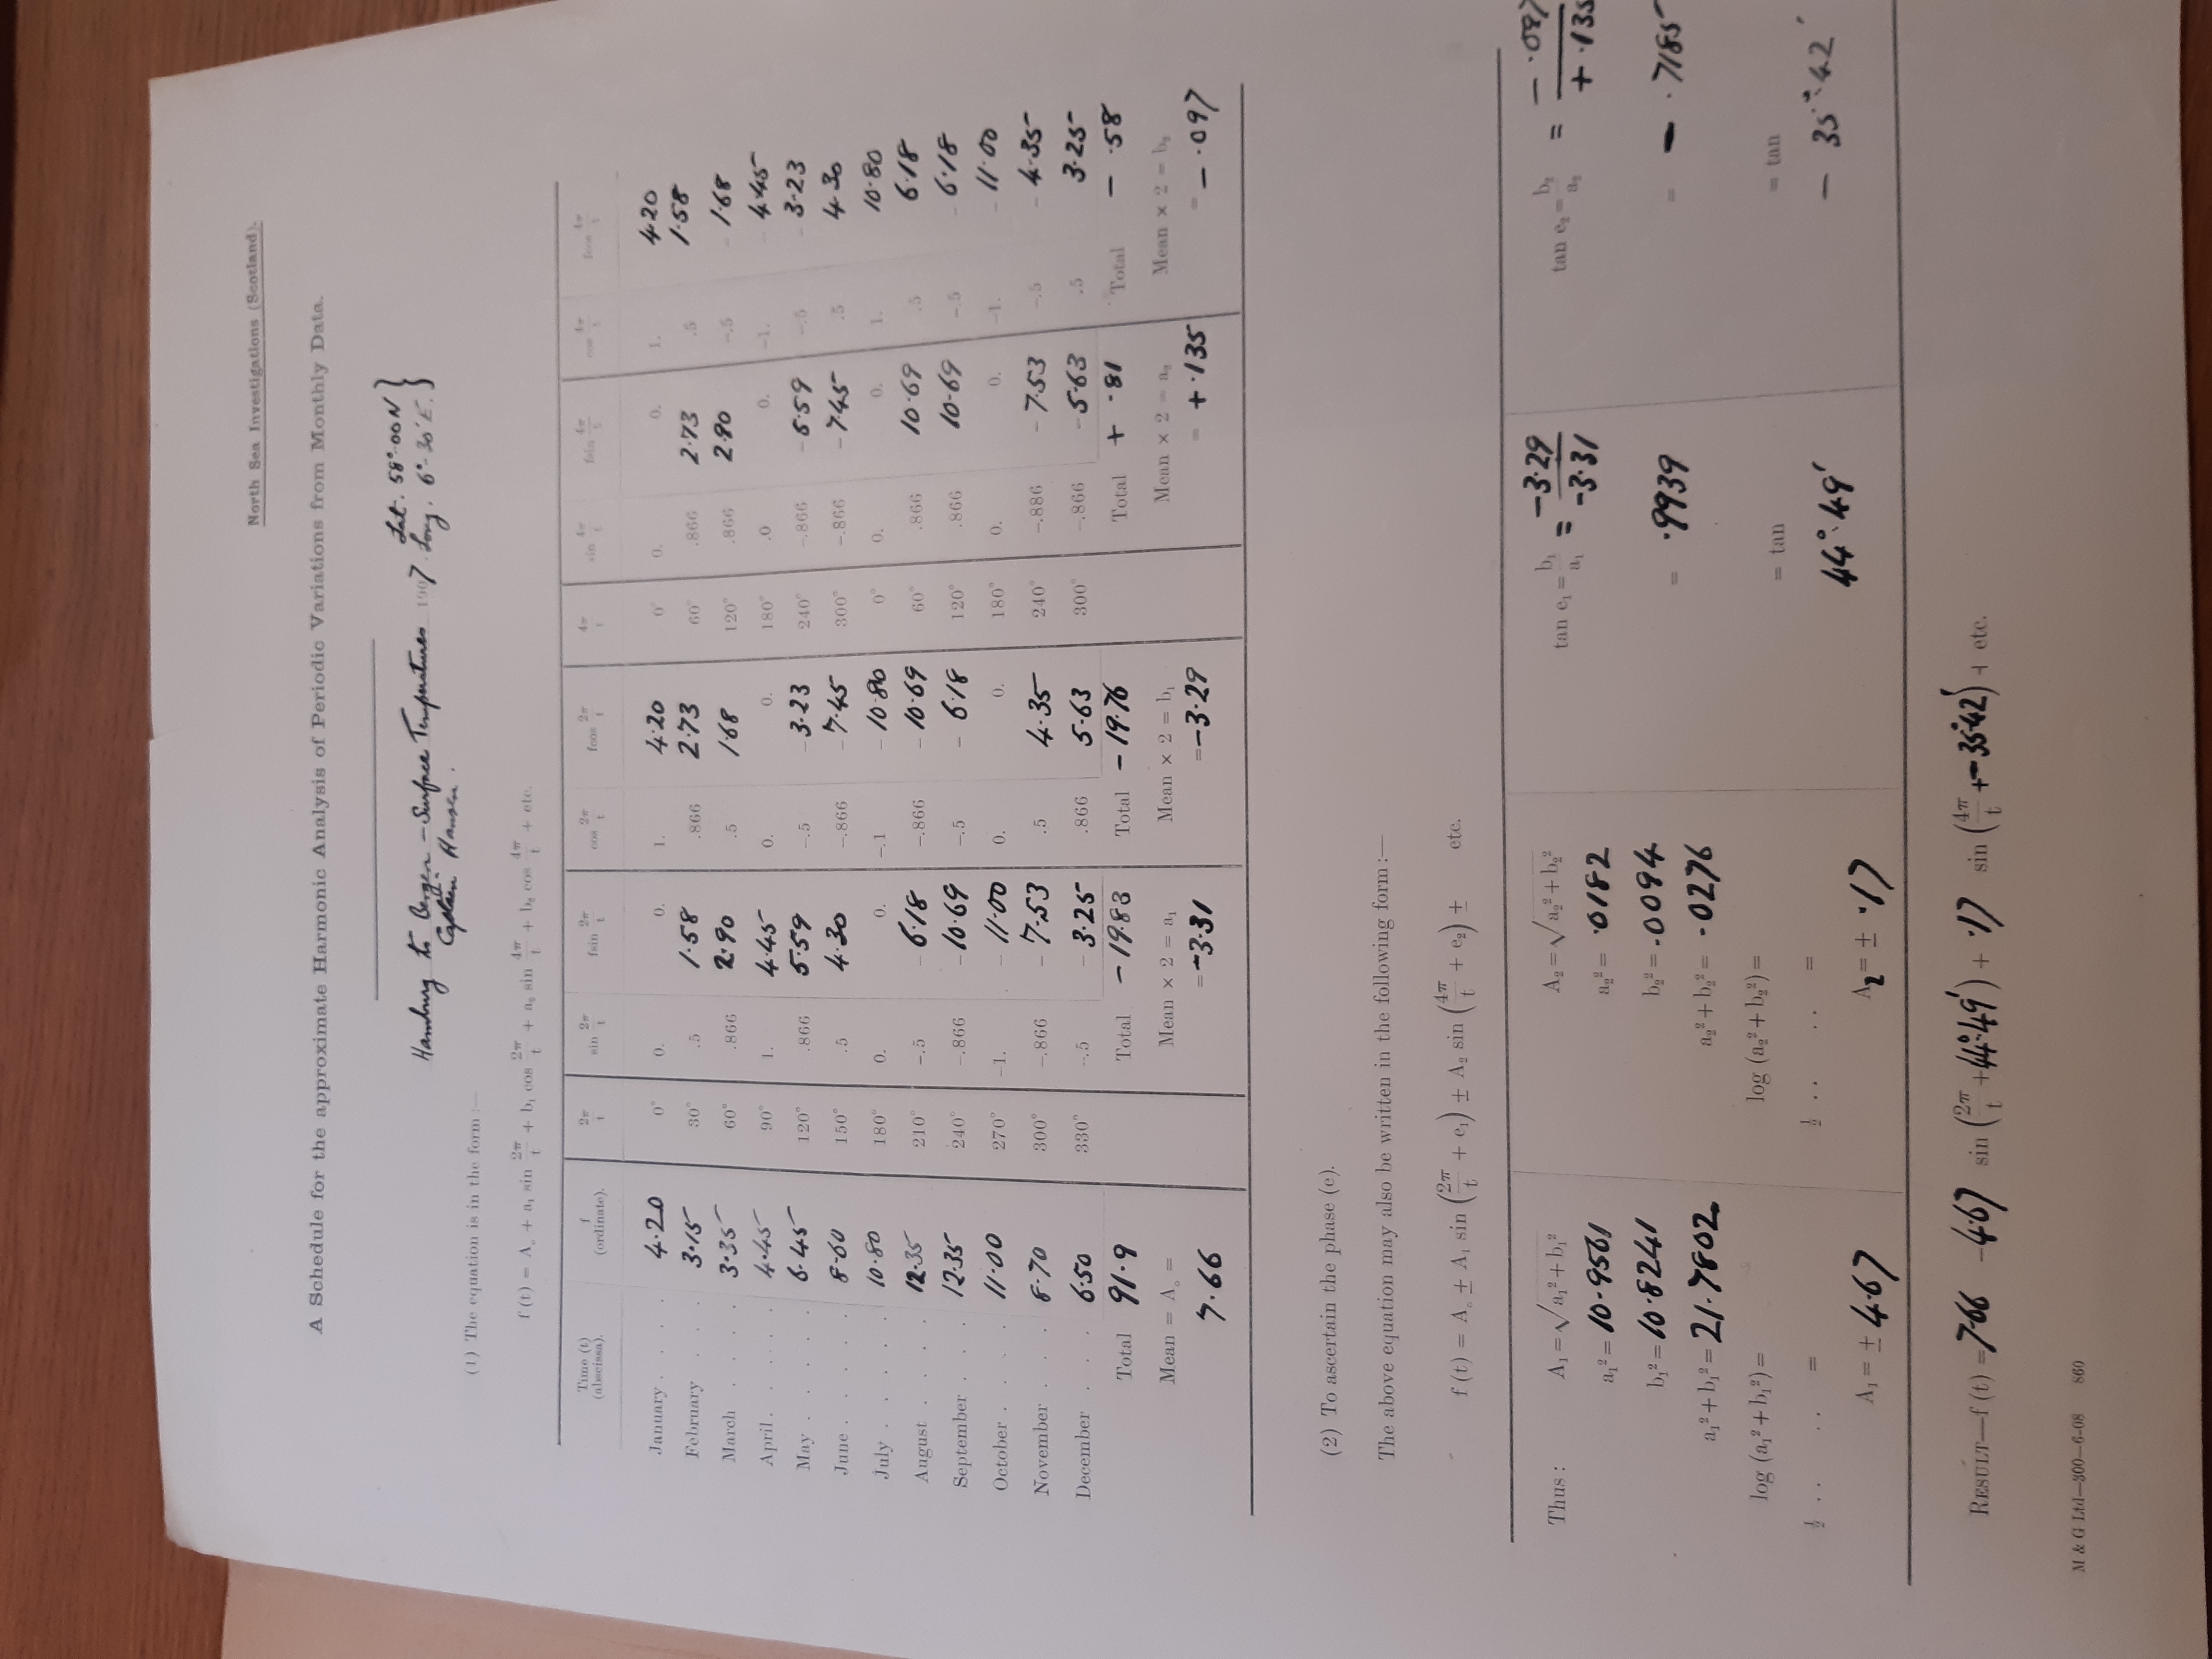 North Sea Investigations (Scotland).
A Schedule for the approximate Harmonic Analysis of Periodic Variations from Monthly Data.
Hamburg to Bergen – Surface Temperatures 1907. Lat. 58°.00 N } Long. 6°-30' E.
Captain Hansen.
(1) The equation is in the form :—
f (t) = A₀ + a₁ sin 2π/t + b₁ cos 2π/t + a₂ sin 4π/t + b₂ cos 4π/t + etc.
Time (t) (abscissa). f (ordinate). 2π/t sin 2π/t fsin 2π/t cos 2π/t fcos 2π/t 4π/t sin 4π/t fsin 4π/t cos 4π/t fcos 4π/t
January . . . . 4·20 0° 0. 0. 1. 4·20 0° 0. 0. 1. 4·20
February . . . 3·15 30° .5 1·58 .866 2·73 60° .866 2·73 .5 1·58
March . . . . 3·35 60° .866 2·90 .5 1·68 120° .866 2·90 –.5 – 1·68
April . . . . . 4·45 90° 1. 4·45 0. 0. 180° .0 0. –1. – 4·45
May . . . . . 6·45 120° .866 5·59 –.5 – 3·23 240° –.866 – 5·59 –.5 – 3·23
June . . . . . 8·60 150° .5 4·30 –.866 – 7·45 300° –.866 – 7·45 .5 4·30
July . . . . . 10·80 180° 0. 0. –.1 – 10·80 0° 0. 0. 1. 10·80
August . . . . 12·35 210° –.5 – 6·18 –.866 – 10·69 60° .866 10·69 .5 6·18
September . . . 12·35 240° –.866 – 10·69 –.5 – 6·18 120° .866 10·69 –.5 – 6·18
October . . . . 11·00 270° –1. – 11·00 0. 0. 180° 0. 0. –1. – 11·00
November . . . 8·70 300° –.866 – 7·53 .5 4·35 240° –.886 – 7·53 –.5 – 4·35
December . . . 6·50 330° –.5 – 3·25 .866 5·63 300° –.866 – 5·63 .5 3·25
Total 91·9 Total – 19·83 Total – 19·76 Total + ·81 Total – ·58
Mean = A₀ = Mean × 2 = a₁ Mean × 2 = b₁ Mean × 2 = a₂ Mean × 2 = b₂
7·66 = –3·31 = –3·29 = + ·135 = – ·097
(2) To ascertain the phase (e).
The above equation may also be written in the following form :—
f (t) = A₀ ± A₁ sin (2π/t + e₁) ± A₂ sin (4π/t + e₂) ± etc.
Thus : A₁ = √a₁² + b₁² A₂ = √a₂² + b₂² tan e₁ = b₁/a₁ = –3·29/–3·31 tan e₂ = b₂/a₂ = – ·097/+ ·135
a₁² = 10·9561 a₂² = ·0182
b₁² = 10·8241 b₂² = ·0094 = ·9939 = – ·7185
a₁² + b₁² = 21·7802 a₂² + b₂² = ·0276
log (a₁² + b₁²) = log (a₂² + b₂²) = = tan = tan
½ . . . . = ½ . . . . = 44°·49' – 35°·42'
A₁ = ± 4·67 A₂ = ± ·17
RESULT—f (t) = 7·66 – 4·67 sin (2π/t + 44°·49') + ·17 sin (4π/t + – 35°·42') + etc.
M & G Ltd—300—6-08 860